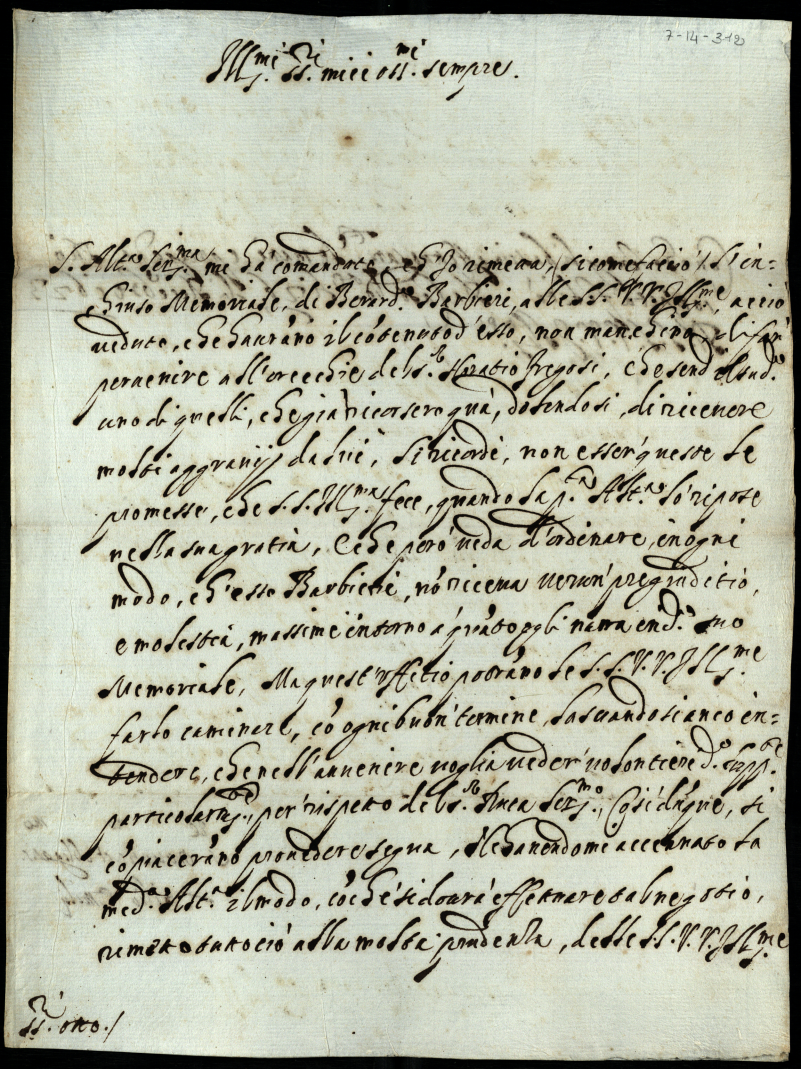 7-14-312
Ill.mi SS.ri miei oss.mi sempre.
S. Alt.a Ser.ma mi hà comandato, ch'Io rimetta, (sicome faccio) l'in=
chiuso Memoriale, di Berard.o Barbieri, alle SS. VV. Ill.me, acciò
veduto, che hauràno il cótenuto d'esso, non manchino di far'
peruenire all'orecchie del S.r Horatio Fregosi, che send'il sud.o
uno di quelli, che già ricorsero quà, dolendosi, di riceuere
molti aggrauij da lui, si ricordi, non esser queste le
promesse, che S.S. Ill.ma fece, quando la p.ta Alt.a lo ripose
nella sua gratia, e che però veda d'ordinare, in ogni
modo, ch'esso Barbieri, nó riceua uerun' pregiuditio,
e molestia, massime intorno a quáto egli narra in d.o suo
Memoriale, Ma quest'uffitio potràno le SS. VV. Ill.me
farlo caminare, có ogni buon' termine, lasciandosi anco in=
tendere, che nell'auuenire uoglia ueder' uolontieri d.o
particolarm.te, per rispetto del S.r Duca Ser.mo, Così dúque, si
cópiaceràno prouedere segua, et hauendomi accennato la
med.a Alt.a il modo, có che si dourà effettuare tal negotio,
rimetto tutto ciò alla molta prudenza, delle SS. VV. Ill.me
SS.ri otto./